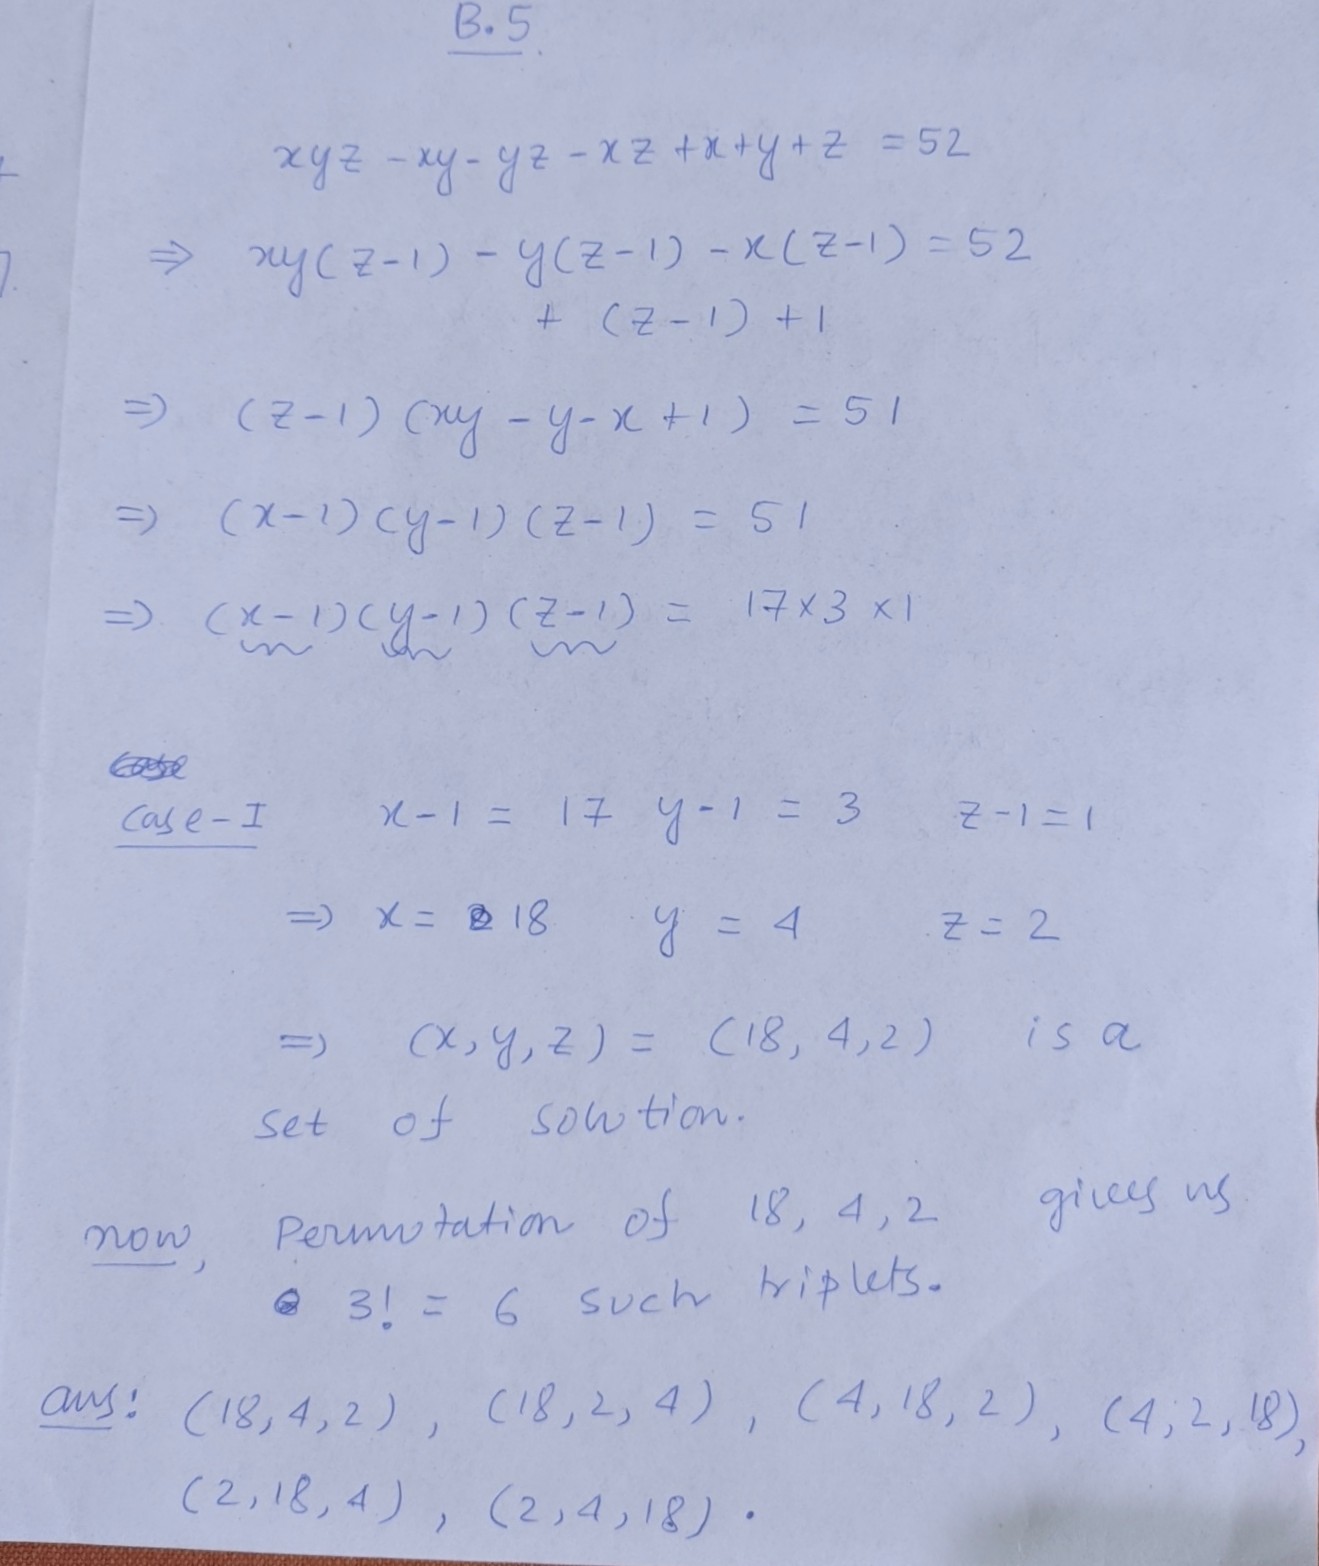 B.5
xyz - xy - yz - xz + x + y + z = 52
⇒ xy(z-1) - y(z-1) - x(z-1) = 52
+ (z-1) + 1
⇒ (z-1) (xy - y - x + 1) = 51
⇒ (x-1)(y-1)(z-1) = 51
⇒ (x-1)(y-1)(z-1) = 17×3×1
Case-I x-1 = 17 y-1 = 3 z-1 = 1
⇒ x = 18 y = 4 z = 2
⇒ (x, y, z) = (18, 4, 2) is a
set of solution.
now, Permutation of 18, 4, 2 gives us
3! = 6 such triplets.
ans: (18, 4, 2), (18, 2, 4), (4, 18, 2), (4, 2, 18),
(2, 18, 4), (2, 4, 18).